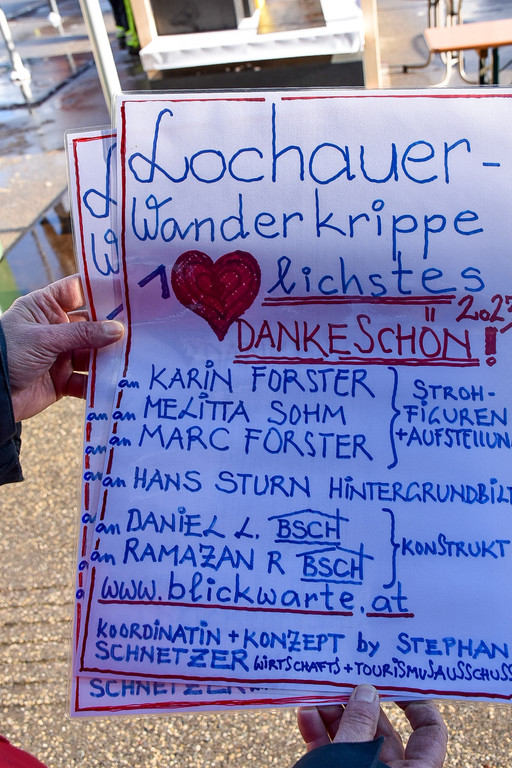 Lochauer-
Wanderkrippe
1 ❤ lichstes
2023
DANKESCHÖN!
an KARIN FORSTER
an MELITTA SOHM
an MARC FORSTER
STROH-
FIGUREN
+AUFSTELLUN
an HANS STURN HINTERGRUNDBIL
an DANIEL L. BSCH
an RAMAZAN R BSCH
KONSTRUKT
www.blickwarte.at
KOORDINATIN + KONZEPT by STEPHAN
SCHNETZER WIRTSCHAFTS+TOURISMUSAUSSCHUSS
SCHNETZER